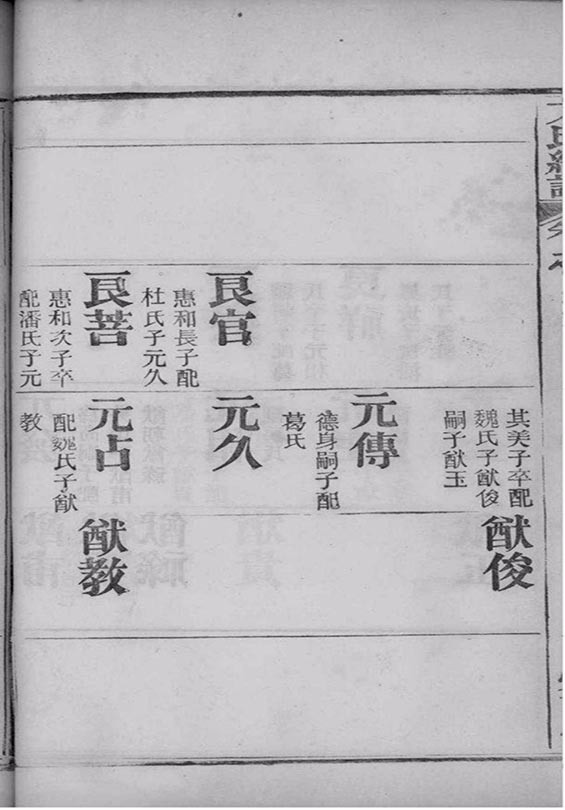 氏經譜
其美子卒配
魏氏子猷俊
嗣子猷玉
猷俊
元傳
德身嗣子配
葛氏
良官
惠和長子配
杜氏子元久
元久
良善
惠和次子卒
配潘氏子元
元占
配魏氏子猷
教
猷教